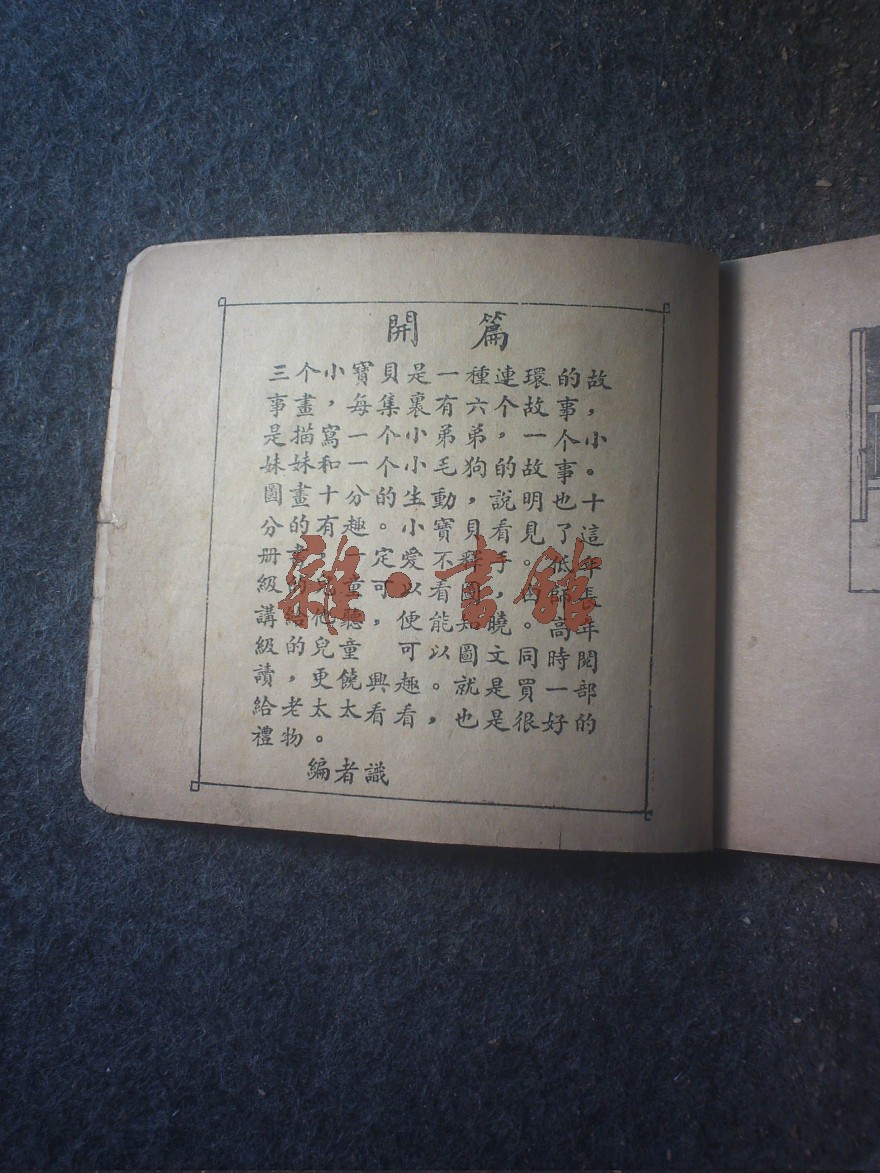 開篇
三个小寶貝是一種連環的故
事畫,每集裏有六个故事,
是描寫一个小弟弟,一个小
妹妹和一个小毛狗的故事。
圖畫十分的生動,說明也十
分的有趣。小寶貝看見了這
册書,一定愛不釋手。低年
級 童可以看圖,由師長
講給他聽,便能知曉。高年
級的兒童可以圖文同時閱
讀,更饒興趣。就是買一部
給老太太看看,也是很好的
禮物。
編者識
雜·書館